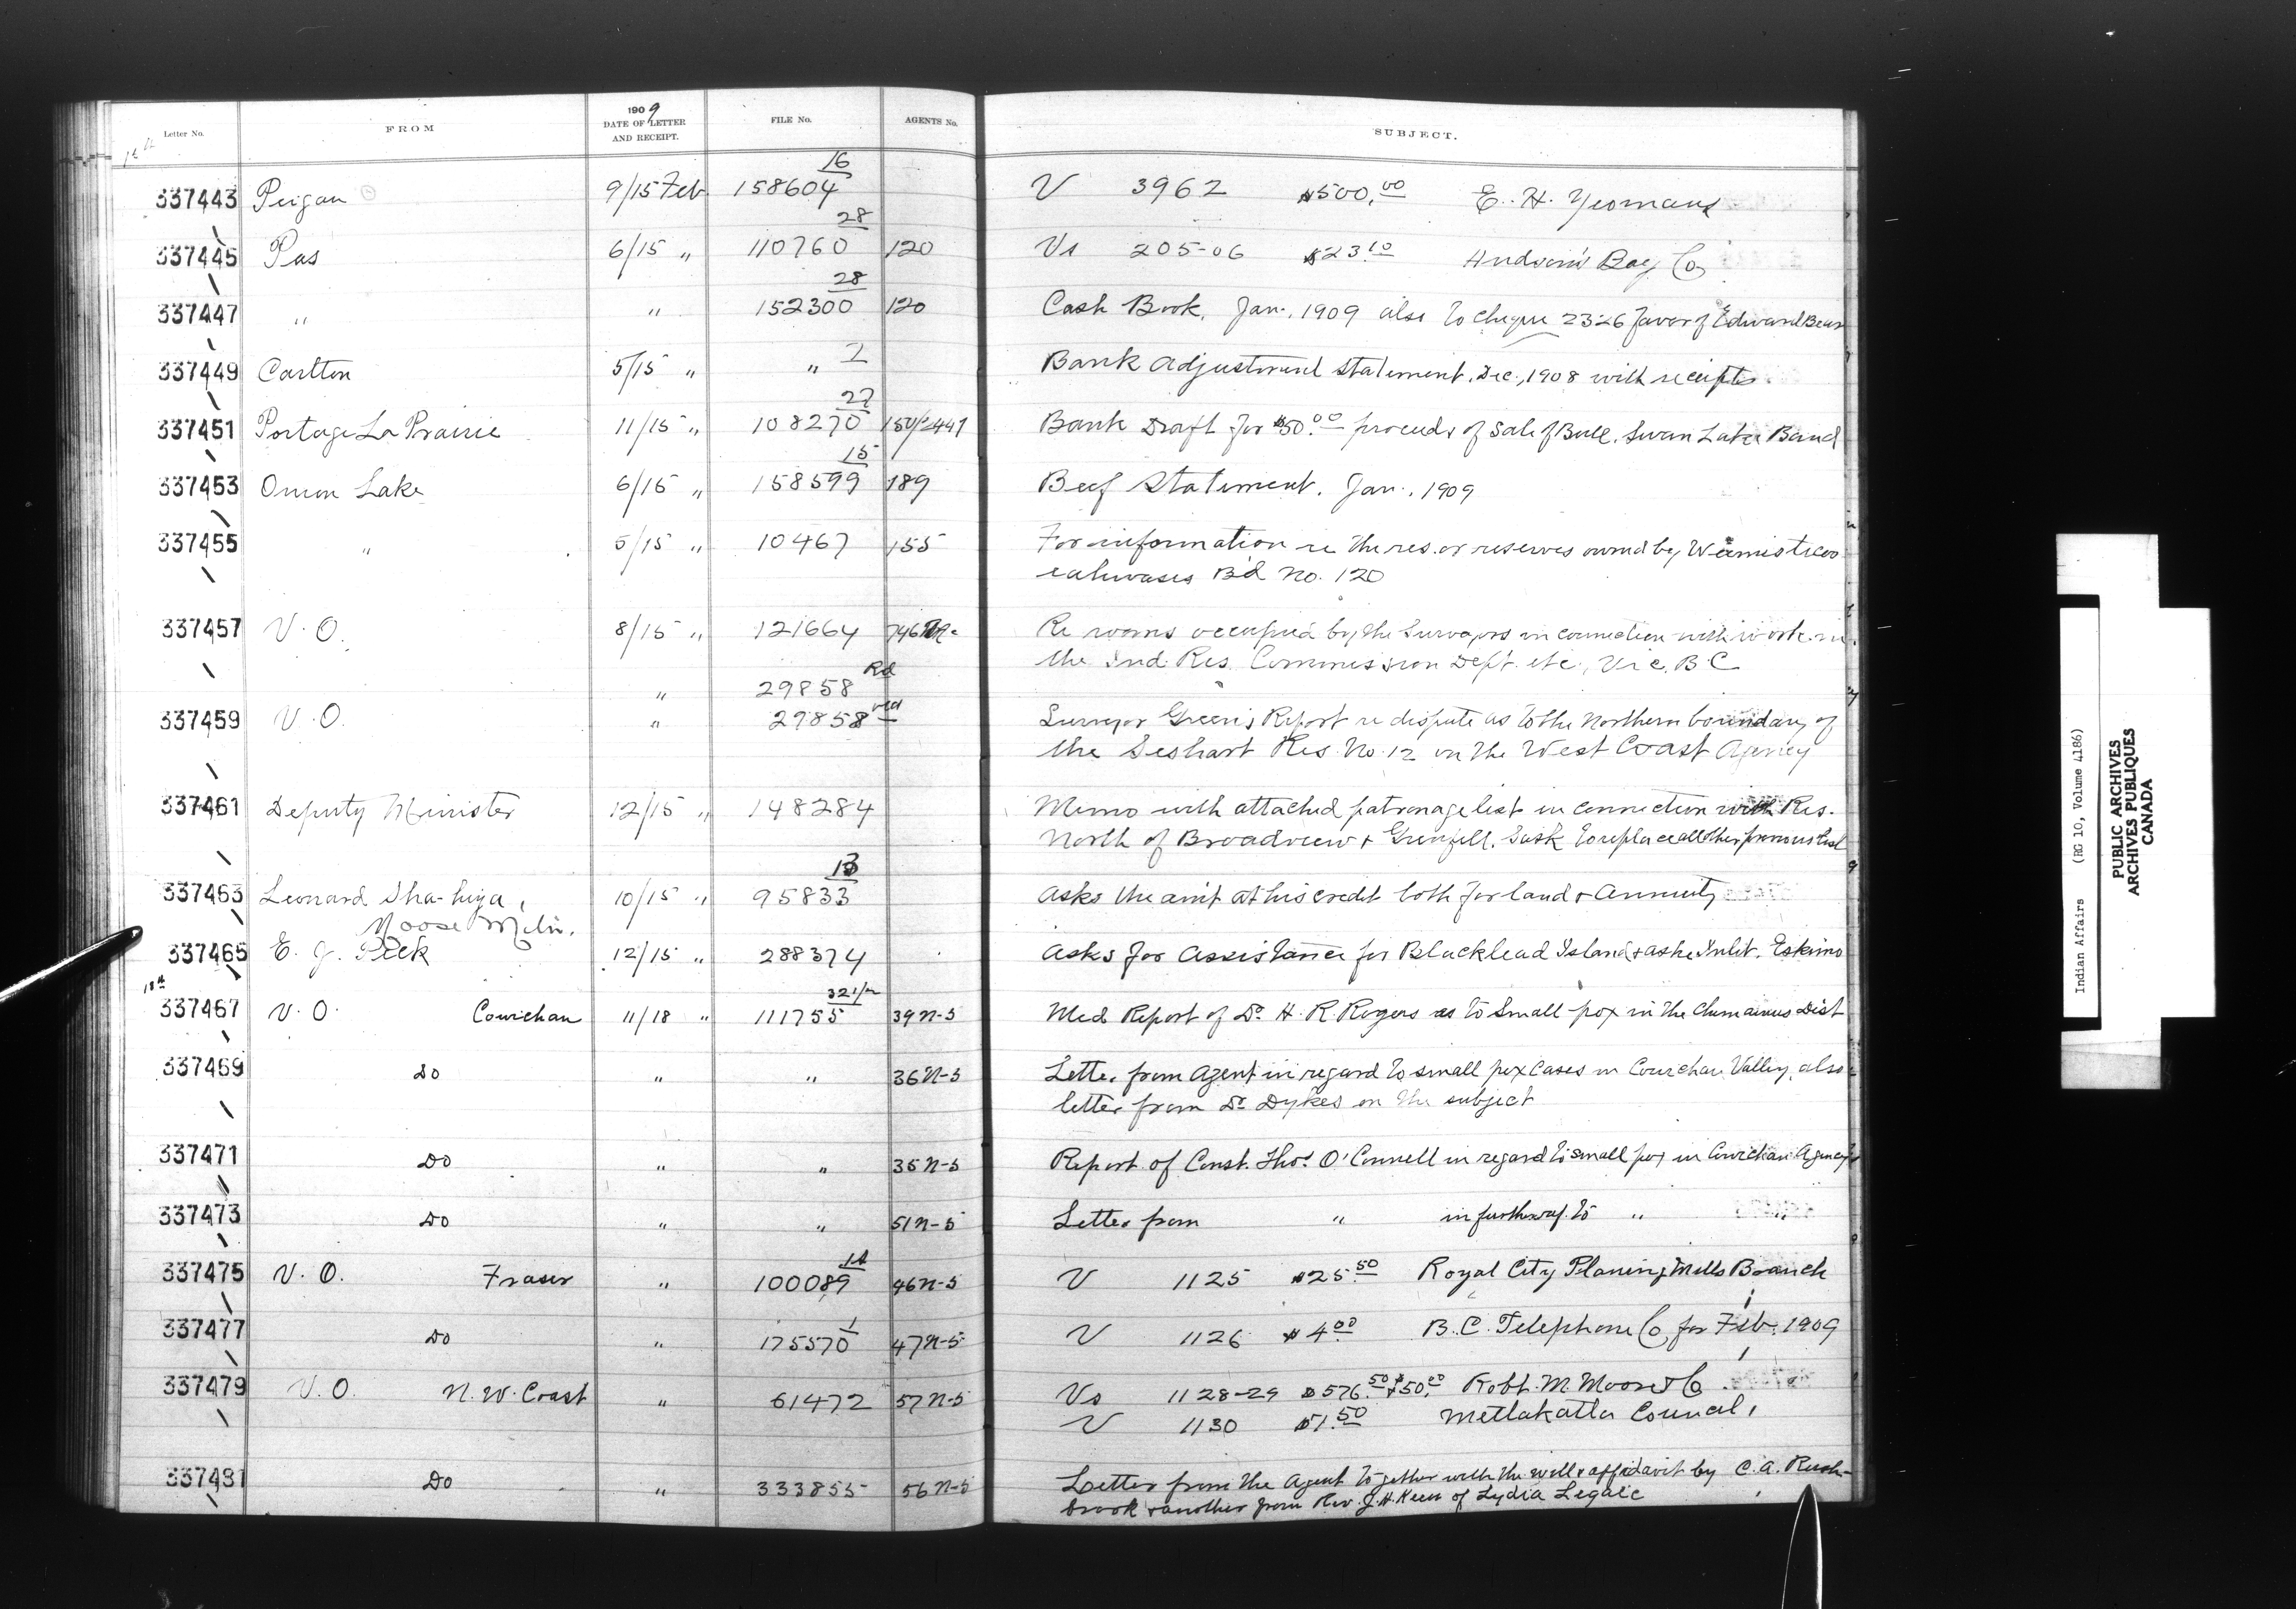 Letter No. FROM 1909 DATE OF LETTER AND RECEIPT. FILE No. AGENTS No. SUBJECT.
337443 Peigan 9/15 Feb 158604 16 V 3962 $500.00 E. H. Yeomans
337445 Pas 6/15 " 110760 28 120 Vs 205-06 $23.10 Hudson's Bay Co
337447 " " 152300 28 120 Cash Book, Jan., 1909 also to cheque 2326 favor of Edward Bear
337449 Carlton 5/15 " " 2 Bank Adjustment Statement, Dec., 1908 with receipts.
337451 Portage La Prairie 11/15 " 108270 27 150/2441 Bank Draft for $50.00 proceeds of Sale of Bull, Swan Lake Band
337453 Onion Lake 6/15 " 158599 15 189 Beef Statement, Jan., 1909
337455 " 5/15 " 10467 155 For information re the res. or reserves owned by
Bd No. 120
337457 V. O. 8/15 " 121664 Re rooms occupied by the Surveyors in connection with work in
the Ind Res. Commission Dept. etc, Vic. B C
" 29858 Rd
337459 V. O. " 29858 Surveyor Green's Report re dispute as to the Northern boundary of
the Seshart Res. No. 12 in the West Coast Agency
337461 Deputy Minister 12/15 " 148284 Memo with attached patronage list in connection with Res.
North of Broadview & Grenfell, Sask to replace all other previous list
337463 Leonard Sha-higa, 10/15 " 95833 13 Asks the am't at his credit both for land & Annuity
Moose Mtn.
337465 E. J. Peck 12/15 " 288374 Asks for Assistance for Blacklead Island & Eskimo
18th
337467 V. O. Cowichan 11/18 " 111755 39 N-5 Med Report of Dr. H. R. Rogers as to Small-pox in the Chemainus Dist
337469 Do " " 36 N-5 Letter from Agent in regard to small pox cases in Cowichan Valley, also
letter from Dr. Dykes on the subject
337471 Do " " 35 N-5 Report of Const. Thos. O'Connell in regard to small pox in Cowichan Agency
337473 Do " " 51 N-5 Letter from " in further ref. to " "
337475 V. O. Fraser " 100089 46 N-5 V 1125 $25.50 Royal City Planing Mills Branch
337477 Do " 175570 1 47 N-5 V 1126 $4.00 B. C. Telephone Co for Feb. 1909
337479 V. O. N. W. Coast " 61472 57 N-5 Vs 1128-29 $576.50 & $50.00 Robt. M. Moore & Co
V 1130 $1.50 Metlakatla Council,
337481 Do " 333855 56 N-5 Letter from the Agent together with the will & affidavit by C. A. Rush-
brook & another from Rev. J. H. Keen of Lydia Legaic
Indian Affairs (RG 10, Volume 4186)
PUBLIC ARCHIVES
ARCHIVES PUBLIQUES
CANADA